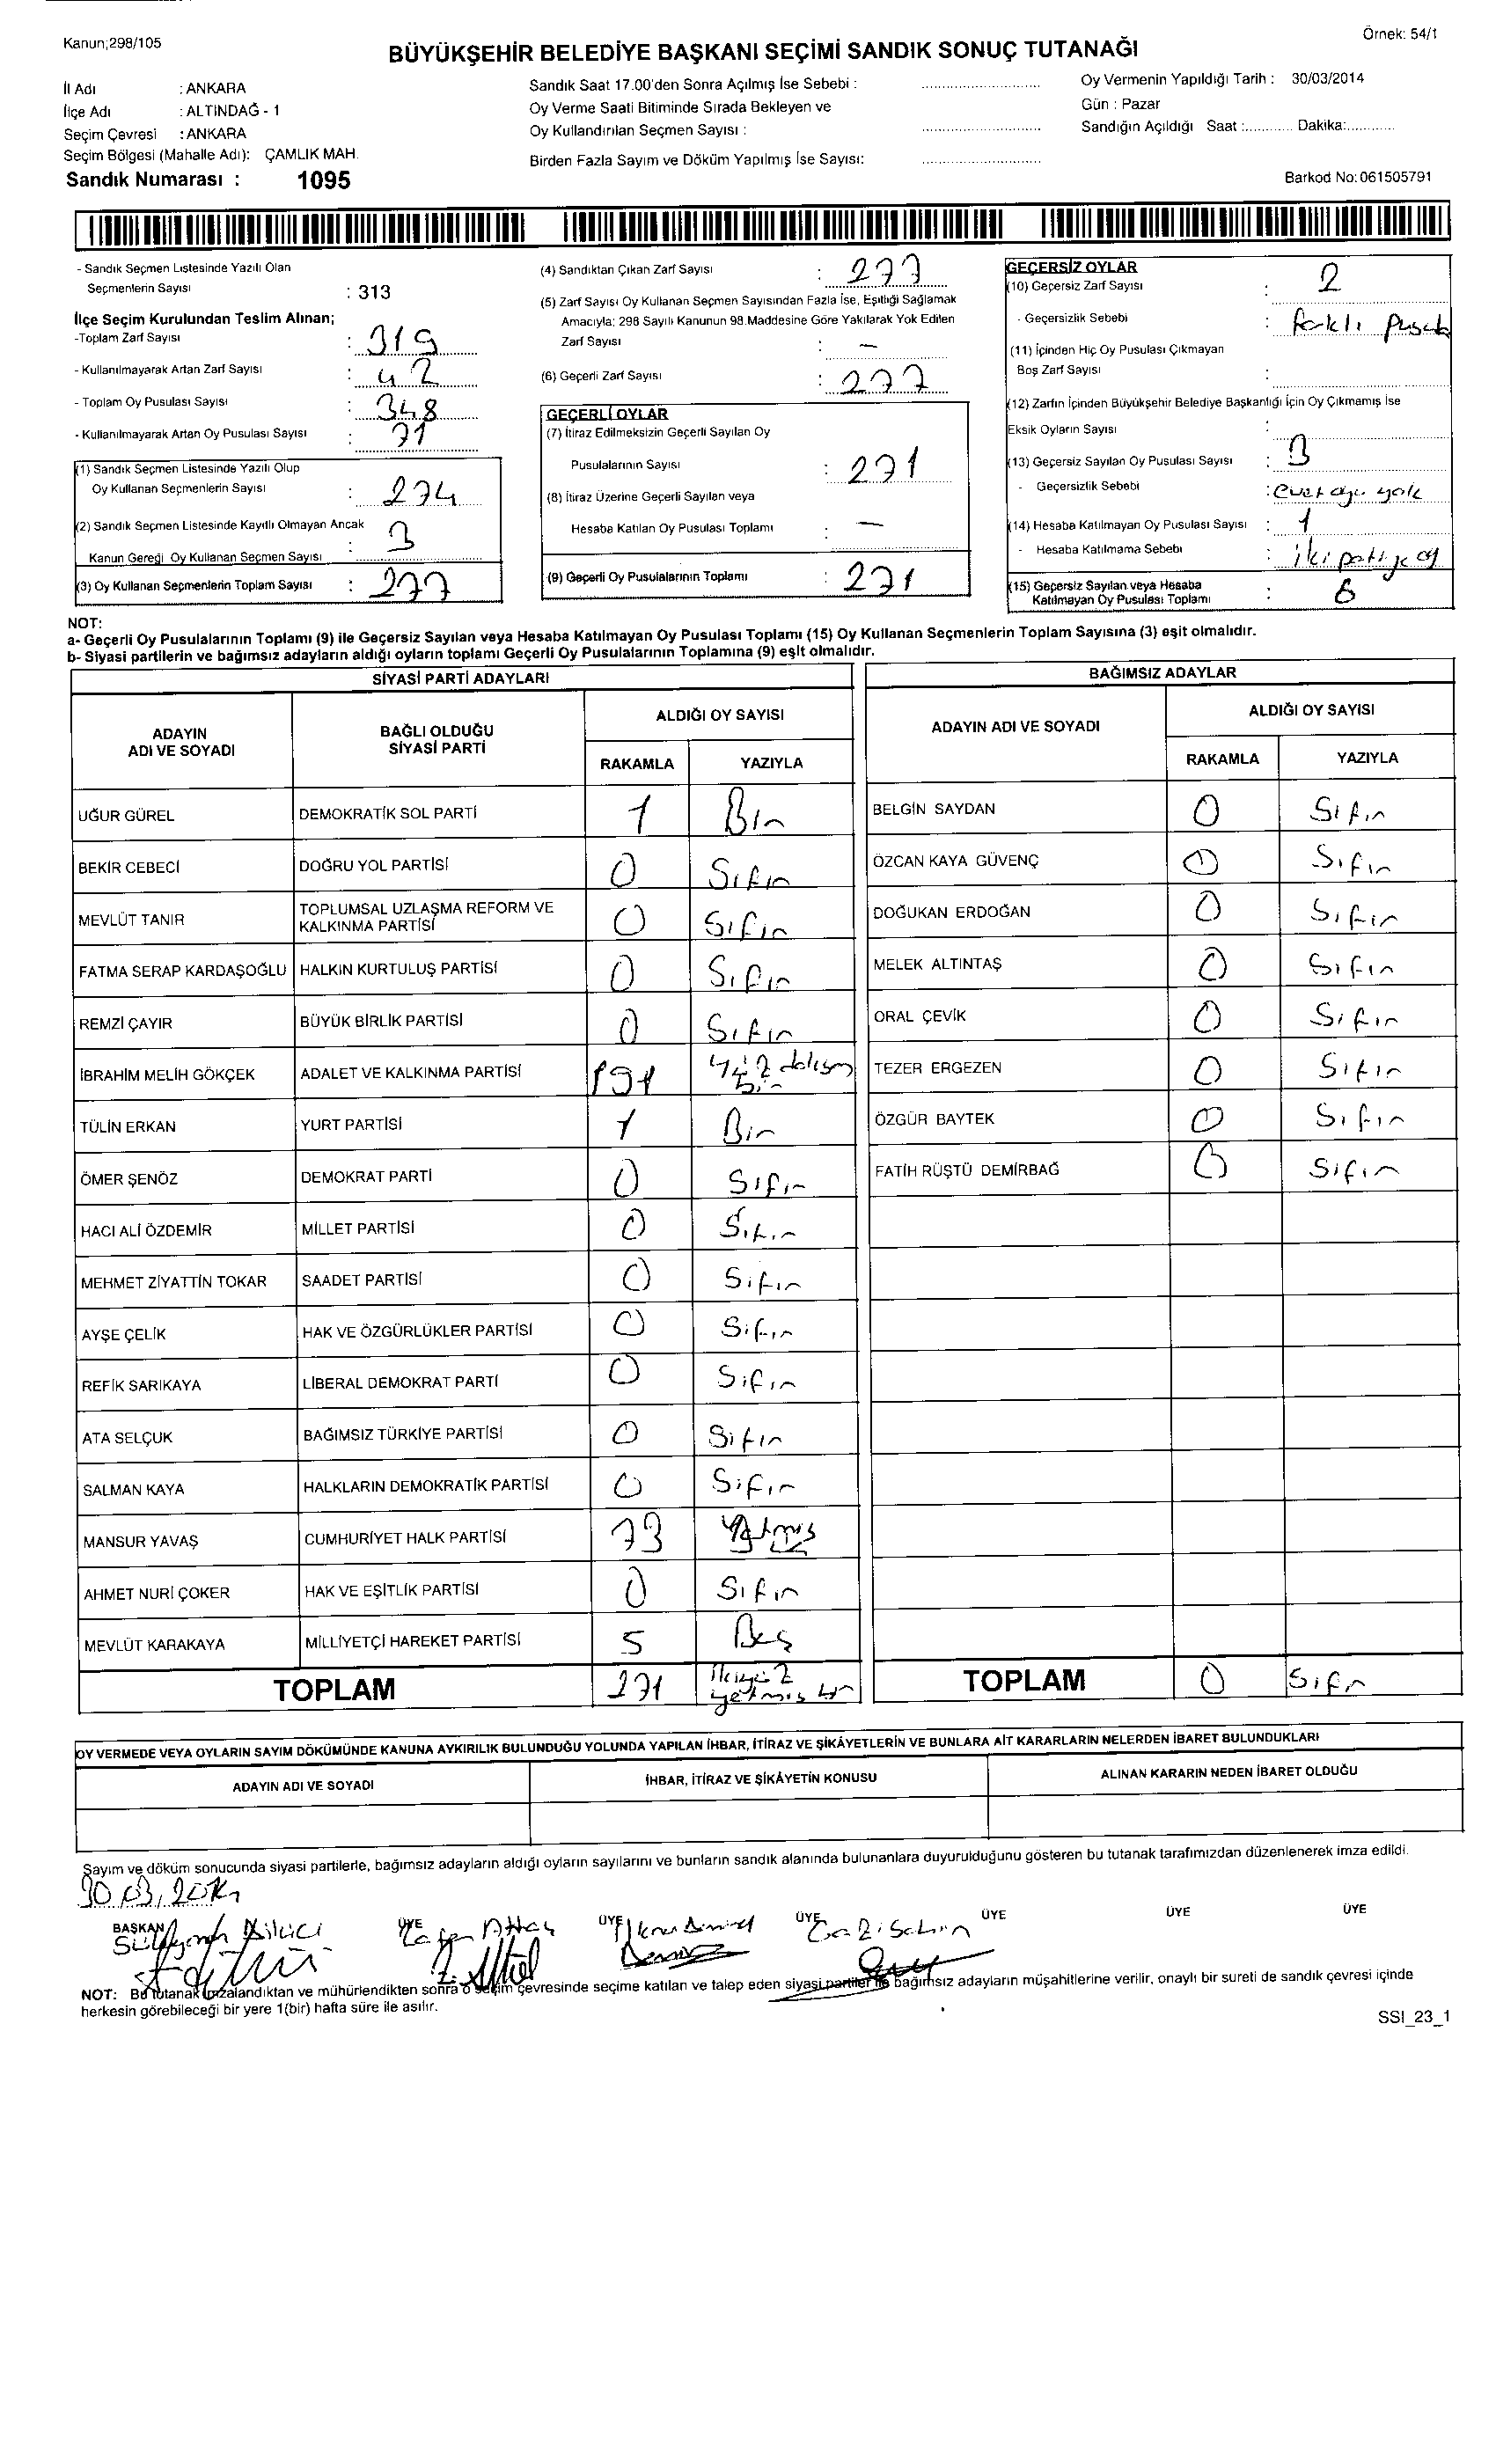 Kanun;298/105
Örnek: 54/1
BÜYÜKŞEHİR BELEDİYE BAŞKANI SEÇİMİ SANDIK SONUÇ TUTANAĞI
İl Adı : ANKARA
İlçe Adı : ALTINDAĞ - 1
Seçim Çevresi : ANKARA
Seçim Bölgesi (Mahalle Adı): ÇAMLIK MAH.
Sandık Numarası : 1095
Sandık Saat 17.00'den Sonra Açılmış İse Sebebi :
Oy Verme Saati Bitiminde Sırada Bekleyen ve
Oy Kullandırılan Seçmen Sayısı :
Birden Fazla Sayım ve Döküm Yapılmış İse Sayısı:
Oy Vermenin Yapıldığı Tarih : 30/03/2014
Gün : Pazar
Sandığın Açıldığı Saat :............ Dakika:............
Barkod No:061505791
- Sandık Seçmen Listesinde Yazılı Olan
Seçmenlerin Sayısı : 313
İlçe Seçim Kurulundan Teslim Alınan;
-Toplam Zarf Sayısı : 319
- Kullanılmayarak Artan Zarf Sayısı : 42
- Toplam Oy Pusulası Sayısı : 348
- Kullanılmayarak Artan Oy Pusulası Sayısı : 71
(1) Sandık Seçmen Listesinde Yazılı Olup
Oy Kullanan Seçmenlerin Sayısı : 274
(2) Sandık Seçmen Listesinde Kayıtlı Olmayan Ancak
Kanun Gereği Oy Kullanan Seçmen Sayısı : 3
(3) Oy Kullanan Seçmenlerin Toplam Sayısı : 277
(4) Sandıktan Çıkan Zarf Sayısı : 277
(5) Zarf Sayısı Oy Kullanan Seçmen Sayısından Fazla İse, Eşitliği Sağlamak
Amacıyla; 298 Sayılı Kanunun 98.Maddesine Göre Yakılarak Yok Edilen
Zarf Sayısı : -
(6) Geçerli Zarf Sayısı : 277
GEÇERLİ OYLAR
(7) İtiraz Edilmeksizin Geçerli Sayılan Oy
Pusulalarının Sayısı : 271
(8) İtiraz Üzerine Geçerli Sayılan veya
Hesaba Katılan Oy Pusulası Toplamı : -
(9) Geçerli Oy Pusulalarının Toplamı : 271
GEÇERSİZ OYLAR
(10) Geçersiz Zarf Sayısı : 2
- Geçersizlik Sebebi : farklı
(11) İçinden Hiç Oy Pusulası Çıkmayan
Boş Zarf Sayısı :
(12) Zarfın İçinden Büyükşehir Belediye Başkanlığı İçin Oy Çıkmamış İse
Eksik Oyların Sayısı :
(13) Geçersiz Sayılan Oy Pusulası Sayısı : 3
- Geçersizlik Sebebi : yok
(14) Hesaba Katılmayan Oy Pusulası Sayısı : 1
- Hesaba Katılmama Sebebi : iki partiye oy
(15) Geçersiz Sayılan veya Hesaba
Katılmayan Oy Pusulası Toplamı : 6
NOT:
a- Geçerli Oy Pusulalarının Toplamı (9) ile Geçersiz Sayılan veya Hesaba Katılmayan Oy Pusulası Toplamı (15) Oy Kullanan Seçmenlerin Toplam Sayısına (3) eşit olmalıdır.
b- Siyasi partilerin ve bağımsız adayların aldığı oyların toplamı Geçerli Oy Pusulalarının Toplamına (9) eşit olmalıdır.
SİYASİ PARTİ ADAYLARI
ADAYIN
ADI VE SOYADI
BAĞLI OLDUĞU
SİYASİ PARTİ
ALDIĞI OY SAYISI
RAKAMLA YAZIYLA
UĞUR GÜREL DEMOKRATİK SOL PARTİ 1 Bir
BEKİR CEBECİ DOĞRU YOL PARTİSİ 0 Sıfır
MEVLÜT TANIR TOPLUMSAL UZLAŞMA REFORM VE
KALKINMA PARTİSİ 0 Sıfır
FATMA SERAP KARDAŞOĞLU HALKIN KURTULUŞ PARTİSİ 0 Sıfır
REMZİ ÇAYIR BÜYÜK BİRLİK PARTİSİ 0 Sıfır
İBRAHİM MELİH GÖKÇEK ADALET VE KALKINMA PARTİSİ 191 yüz doksan
bir
TÜLİN ERKAN YURT PARTİSİ 1 Bir
ÖMER ŞENÖZ DEMOKRAT PARTİ 0 Sıfır
HACI ALİ ÖZDEMİR MİLLET PARTİSİ 0 Sıfır
MEHMET ZİYATTİN TOKAR SAADET PARTİSİ 0 Sıfır
AYŞE ÇELİK HAK VE ÖZGÜRLÜKLER PARTİSİ 0 Sıfır
REFİK SARIKAYA LİBERAL DEMOKRAT PARTİ 0 Sıfır
ATA SELÇUK BAĞIMSIZ TÜRKİYE PARTİSİ 0 Sıfır
SALMAN KAYA HALKLARIN DEMOKRATİK PARTİSİ 0 Sıfır
MANSUR YAVAŞ CUMHURİYET HALK PARTİSİ 73 Yetmiş
AHMET NURİ ÇOKER HAK VE EŞİTLİK PARTİSİ 0 Sıfır
MEVLÜT KARAKAYA MİLLİYETÇİ HAREKET PARTİSİ 5 Beş
TOPLAM 271 ikiyüz
yetmiş bir
BAĞIMSIZ ADAYLAR
ADAYIN ADI VE SOYADI
ALDIĞI OY SAYISI
RAKAMLA YAZIYLA
BELGİN SAYDAN 0 Sıfır
ÖZCAN KAYA GÜVENÇ 0 Sıfır
DOĞUKAN ERDOĞAN 0 Sıfır
MELEK ALTINTAŞ 0 Sıfır
ORAL ÇEVİK 0 Sıfır
TEZER ERGEZEN 0 Sıfır
ÖZGÜR BAYTEK 0 Sıfır
FATİH RÜŞTÜ DEMİRBAĞ 0 Sıfır
TOPLAM 0 Sıfır
OY VERMEDE VEYA OYLARIN SAYIM DÖKÜMÜNDE KANUNA AYKIRILIK BULUNDUĞU YOLUNDA YAPILAN İHBAR, İTİRAZ VE ŞİKÂYETLERİN VE BUNLARA AİT KARARLARIN NELERDEN İBARET BULUNDUKLARI
ADAYIN ADI VE SOYADI İHBAR, İTİRAZ VE ŞİKÂYETİN KONUSU ALINAN KARARIN NEDEN İBARET OLDUĞU
Sayım ve döküm sonucunda siyasi partilerle, bağımsız adayların aldığı oyların sayılarını ve bunların sandık alanında bulunanlara duyurulduğunu gösteren bu tutanak tarafımızdan düzenlenerek imza edildi.
30.03.2014
BAŞKAN ÜYE ÜYE ÜYE ÜYE ÜYE ÜYE
NOT: Bu tutanak imzalandıktan ve mühürlendikten sonra o seçim çevresinde seçime katılan ve talep eden siyasi partiler ile bağımsız adayların müşahitlerine verilir, onaylı bir sureti de sandık çevresi içinde
herkesin görebileceği bir yere 1(bir) hafta süre ile asılır.
SSI_23_1